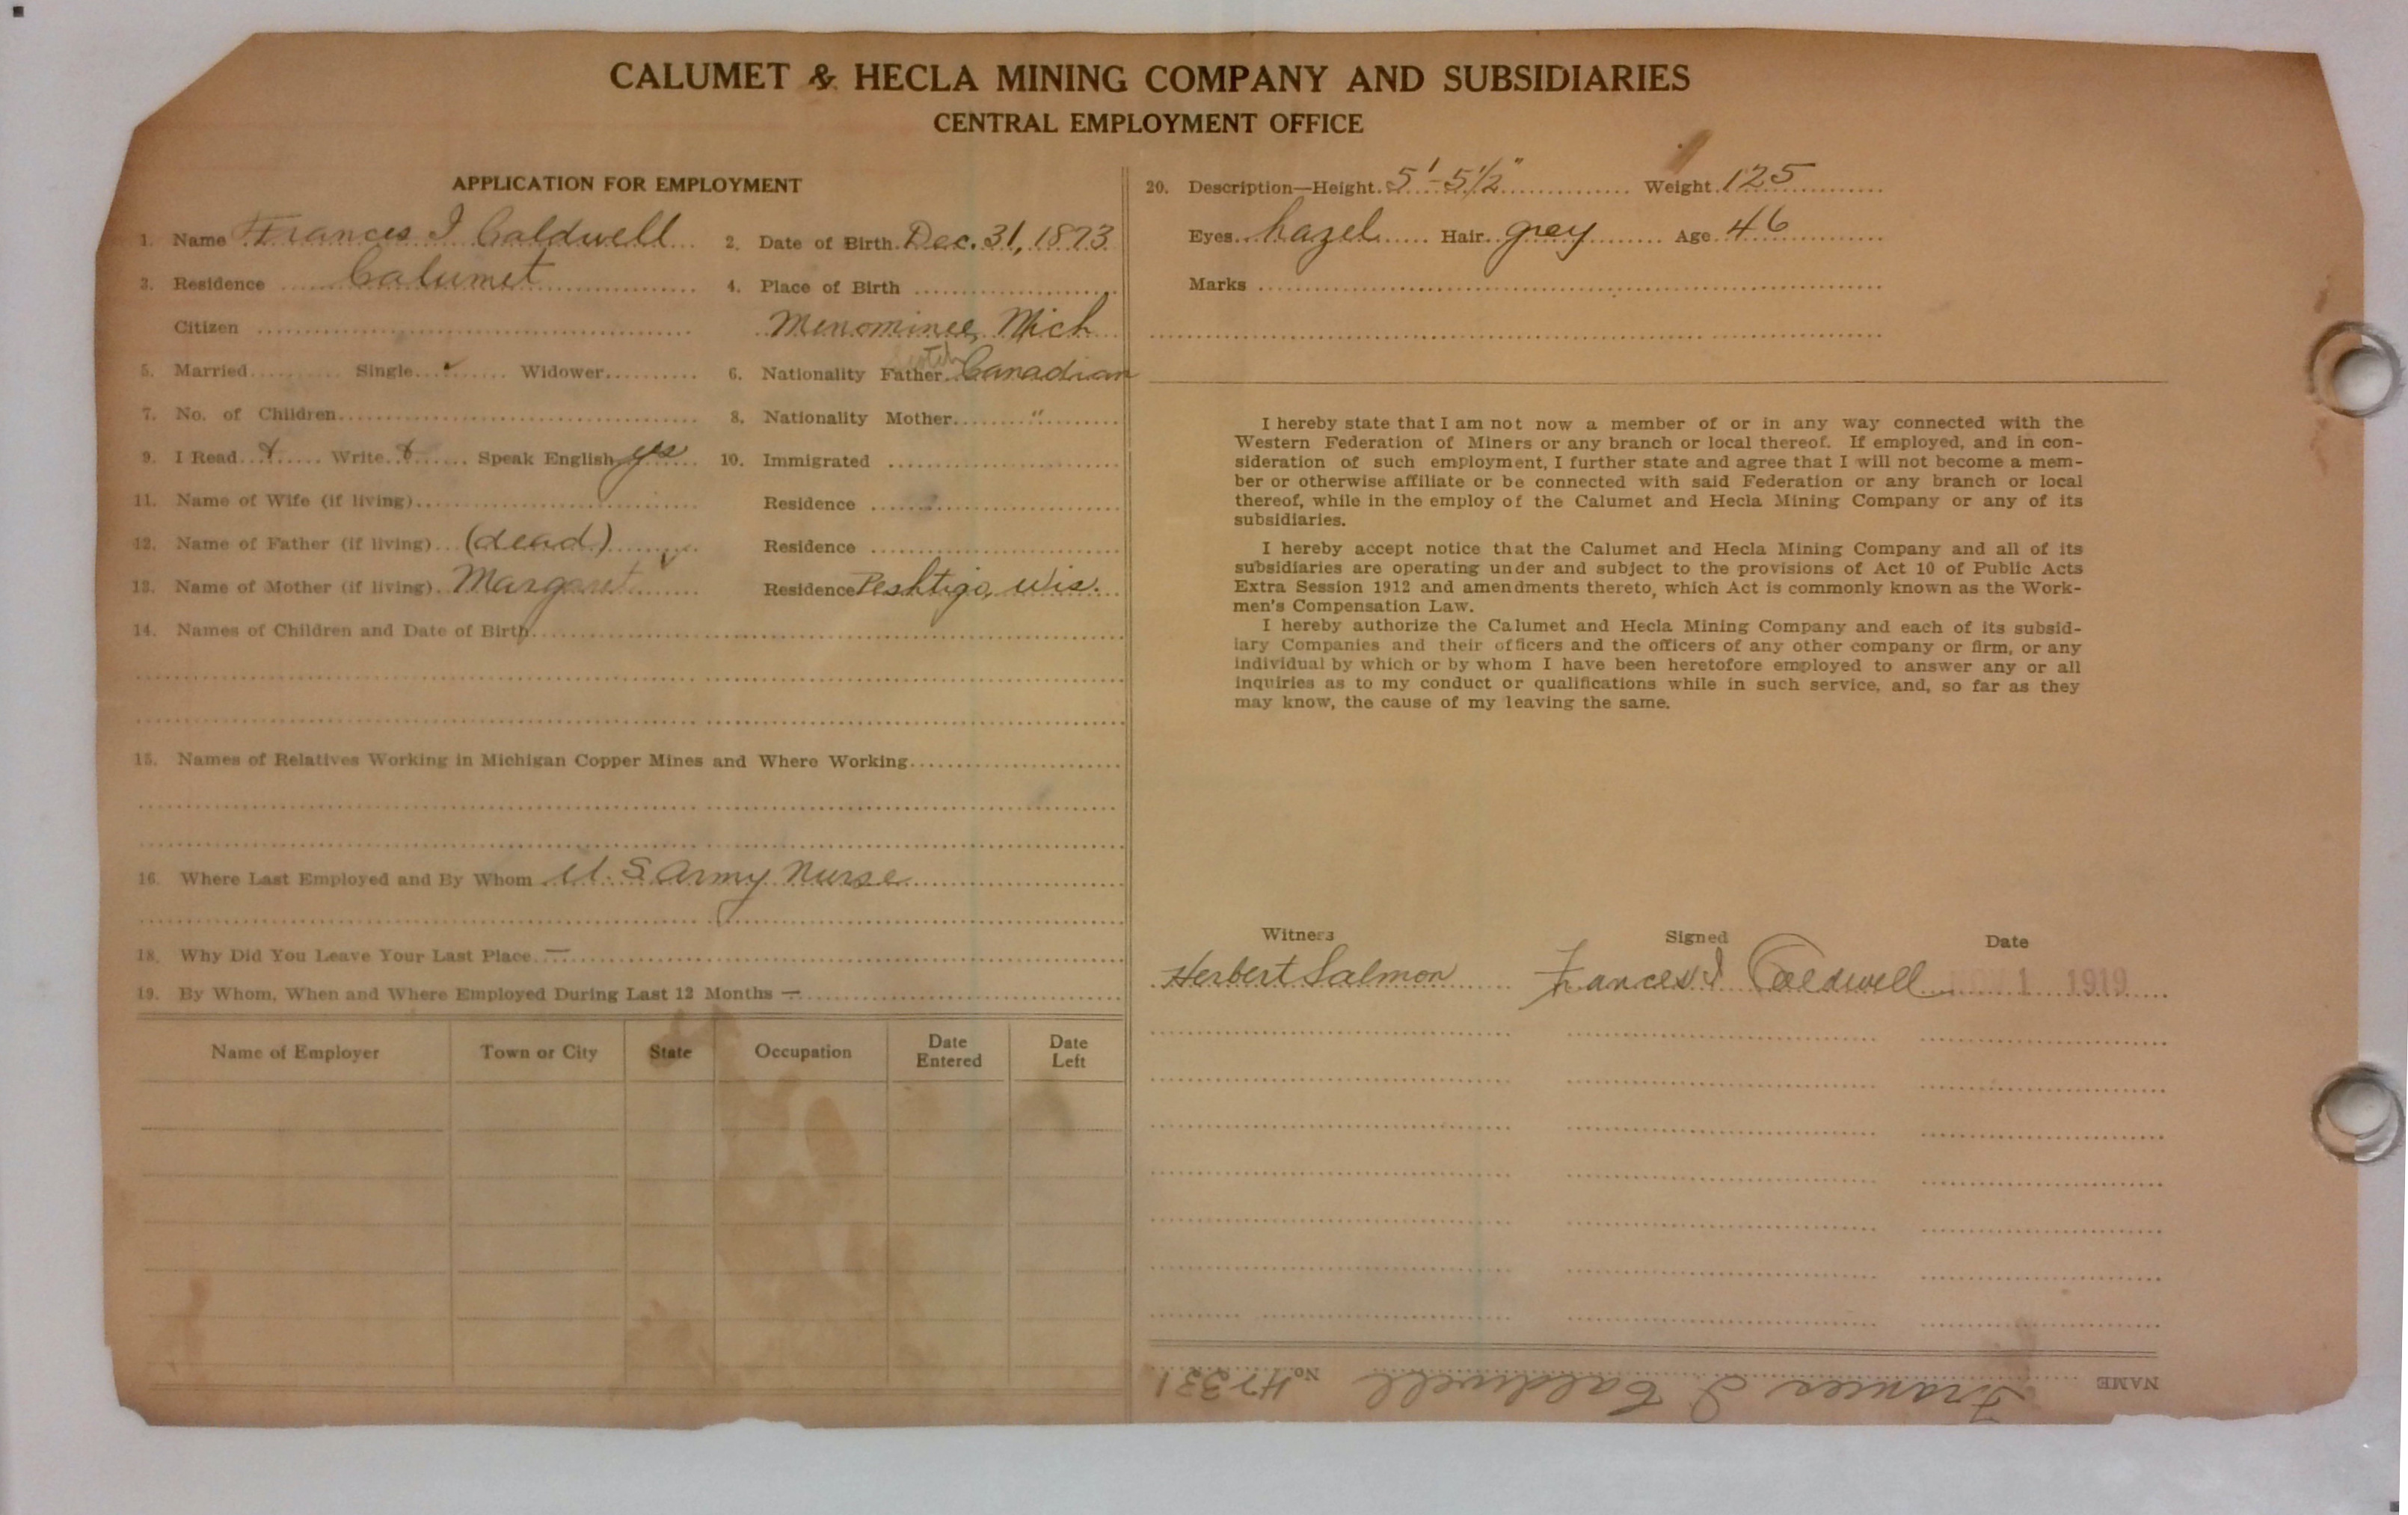 CALUMET & HECLA MINING COMPANY AND SUBSIDIARIES
CENTRAL EMPLOYMENT OFFICE
APPLICATION FOR EMPLOYMENT
1. Name Frances I Caldwell 2. Date of Birth Dec. 31, 1873
3. Residence Calumet 4. Place of Birth
Citizen Menominee, Mich
5. Married Single ✓ Widower 6. Nationality Father Scotch Canadian
7. No. of Children 8. Nationality Mother "
9. I Read x Write x Speak English yes 10. Immigrated
11. Name of Wife (if living) Residence
12. Name of Father (if living) (dead) Residence
13. Name of Mother (if living) Margaret Residence Peshtigo, Wis.
14. Names of Children and Date of Birth
15. Names of Relatives Working in Michigan Copper Mines and Where Working
16. Where Last Employed and By Whom U. S Army Nurse
18. Why Did You Leave Your Last Place —
19. By Whom, When and Where Employed During Last 12 Months —
Name of Employer Town or City State Occupation Date Entered Date Left
20. Description—Height 5'-5½" Weight 125
Eyes hazel Hair grey Age 46
Marks
I hereby state that I am not now a member of or in any way connected with the
Western Federation of Miners or any branch or local thereof. If employed, and in con-
sideration of such employment, I further state and agree that I will not become a mem-
ber or otherwise affiliate or be connected with said Federation or any branch or local
thereof, while in the employ of the Calumet and Hecla Mining Company or any of its
subsidiaries.
I hereby accept notice that the Calumet and Hecla Mining Company and all of its
subsidiaries are operating under and subject to the provisions of Act 10 of Public Acts
Extra Session 1912 and amendments thereto, which Act is commonly known as the Work-
men's Compensation Law.
I hereby authorize the Calumet and Hecla Mining Company and each of its subsid-
iary Companies and their officers and the officers of any other company or firm, or any
individual by which or by whom I have been heretofore employed to answer any or all
inquiries as to my conduct or qualifications while in such service, and, so far as they
may know, the cause of my leaving the same.
Witness Signed Date
Herbert Salmon Frances I Caldwell NOV 1 1919
NAME Frances I Caldwell No. 47331